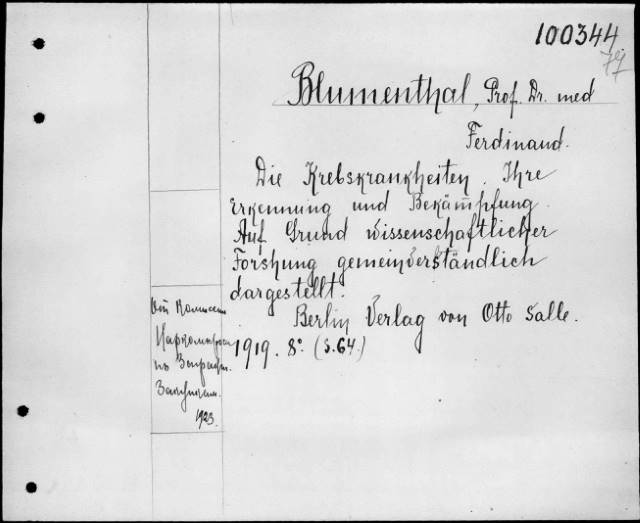 100344
79
Blumenthal, Prof. Dr. med
Ferdinand.
Die Krebskrankheiten. Ihre
Erkennung und Bekämpfung.
Auf Grund wissenschaftlicher
Forshung gemeinverständlich
dargestellt.
Berlin Verlag von Otto Salle.
1919. 8° (S.64.)
От Комиссии
Наркомпроса
по Заграничн.
Закупкам.
1923.